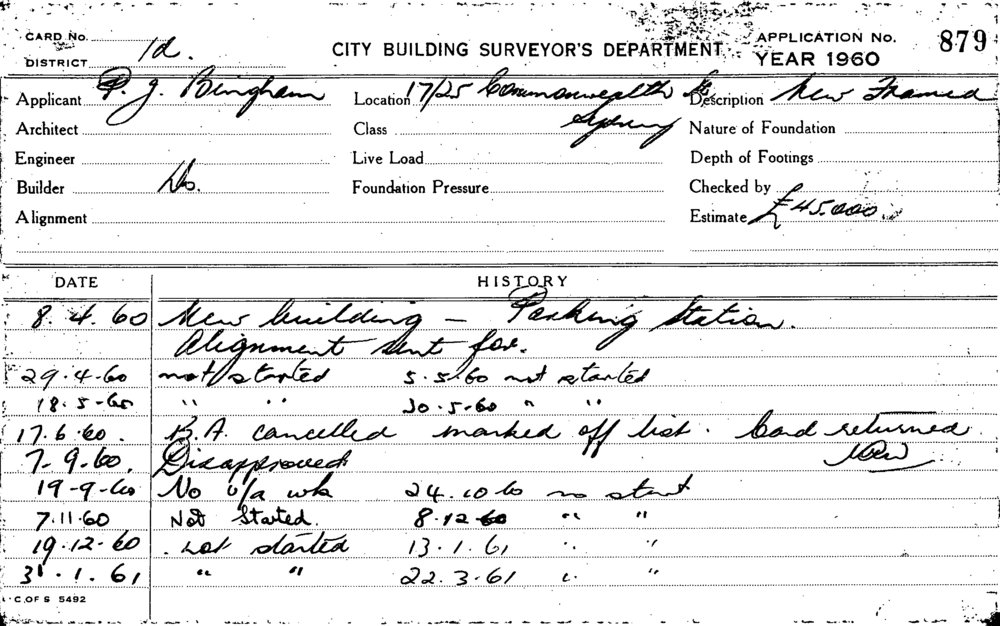 CARD No.
DISTRICT 1d.
CITY BUILDING SURVEYOR'S DEPARTMENT
APPLICATION No. 879
YEAR 1960
Applicant P. J. Bingham
Location 17/25 Commonwealth St
Sydney
Description New Framed
Architect
Class
Nature of Foundation
Engineer
Live Load
Depth of Footings
Builder Do.
Foundation Pressure
Checked by
Alignment
Estimate £45.000.
DATE HISTORY
8.4.60 New building — Parking Station.
Alignment sent for.
29.4.60 not started 5.5.60 not started
18.5.60 " " 30.5.60 " "
17.6.60. B.A. cancelled marked off list. Card returned.
7-9.60. Disapproved
19-9-60 No u/a wk 24.10.60 no start
7.11.60 Not Started. 8.12.60 " "
19.12.60 . not started 13.1.61 " "
31.1.61 " " 22.3.61 " "
C. OF S 5492